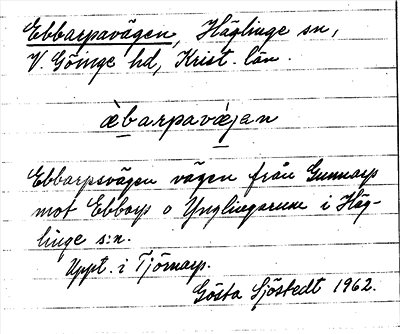 Ebbarpavägen, Häglinge sn,
V. Göinge hd, Krist. län.
æ̀barpavæjan
Ebbarpsvägen vägen från Gunnarp
mot Ebbarp o Ynglingarum i Häg-
linge s:n.
Uppt. i Tjörnarp.
Gösta Sjöstedt 1962.